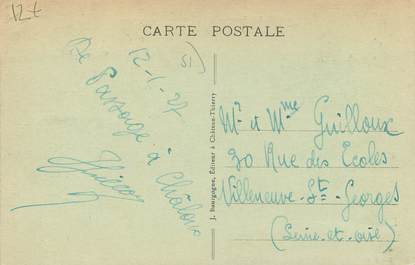 12t
CARTE POSTALE
51)
12-1-27
De Passage à Châlons
J. Bourgogne, Éditeur à Château-Thierry
Mr et Mme Guilloux
30 Rue des Écoles
Villeneuve-St-Georges
(Seine-et-oise)